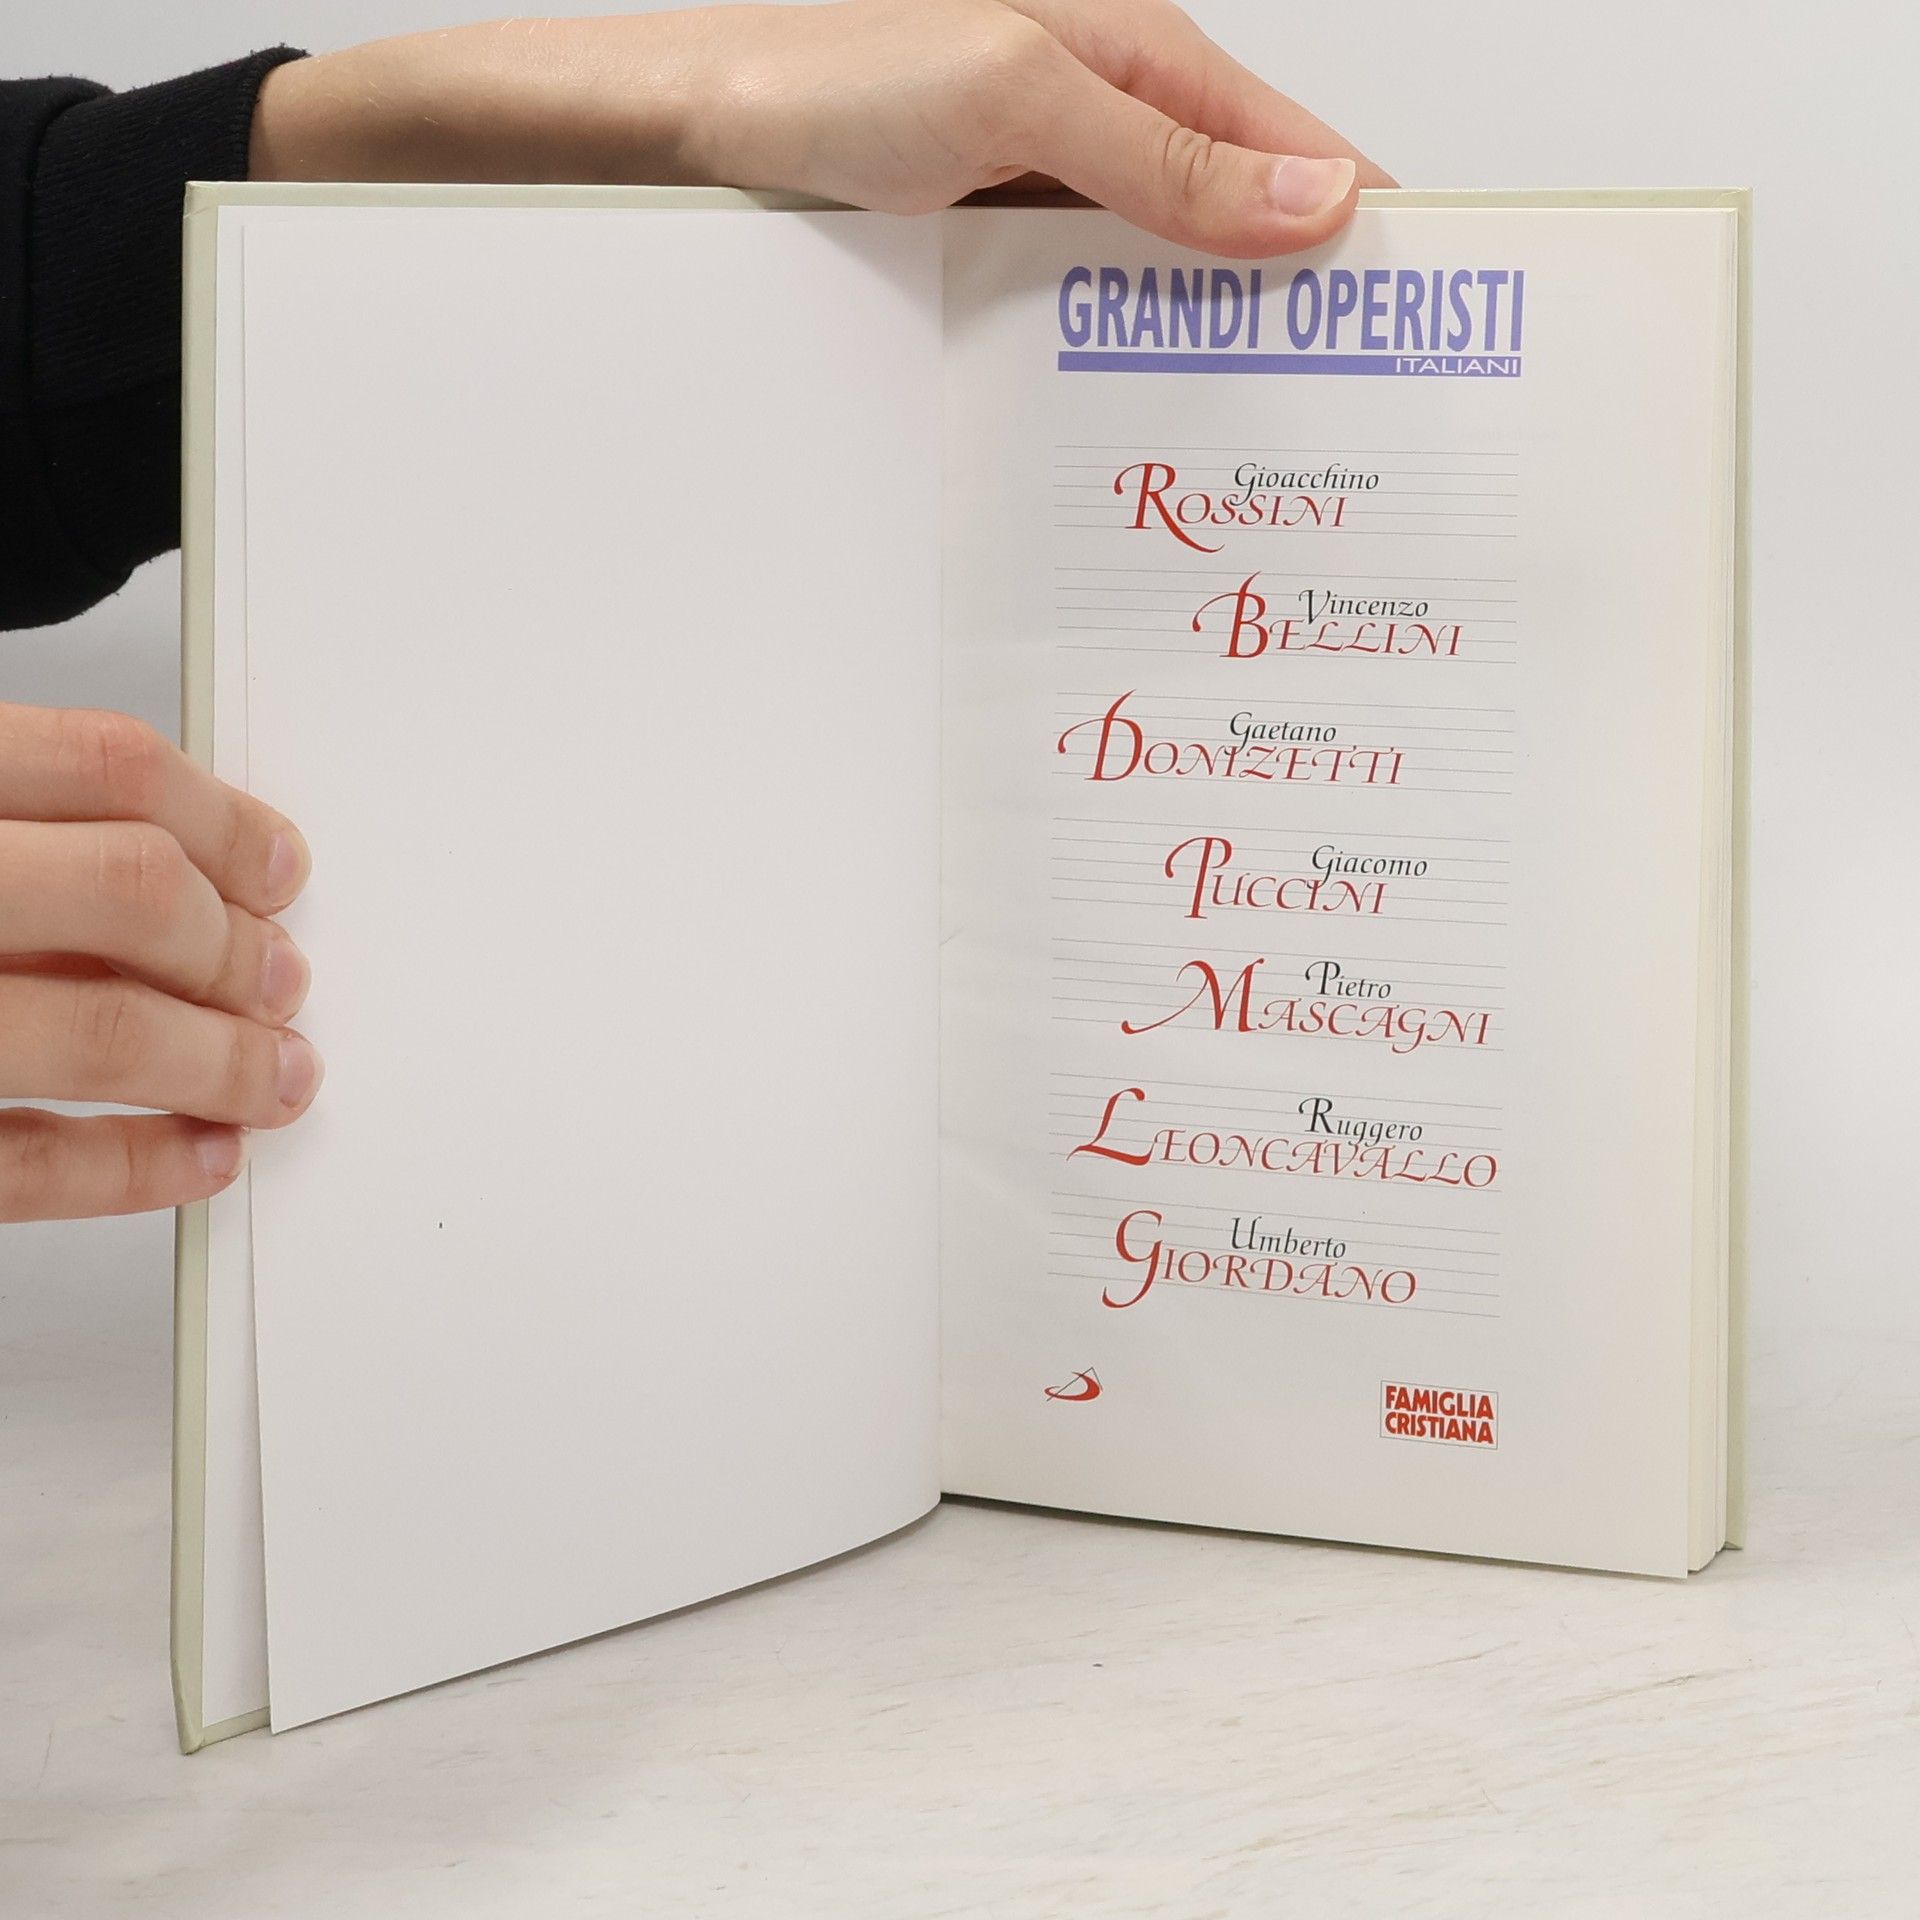 GRANDI OPERISTI
ITALIANI
Gioacchino
ROSSINI
Vincenzo
BELLINI
Gaetano
DONIZETTI
Giacomo
PUCCINI
Pietro
MASCAGNI
Ruggero
LEONCAVALLO
Umberto
GIORDANO
FAMIGLIA
CRISTIANA